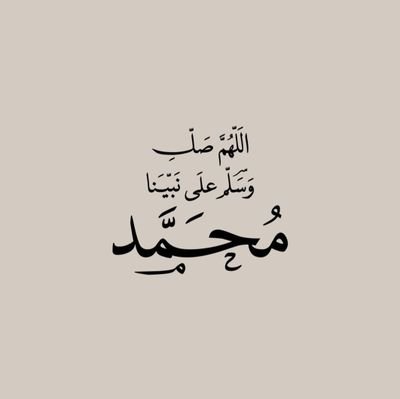 اَللّٰهُمَّ صَلِّ
وَسَلِّم عَلَى نَبِيِّنَا
مُحَمَّد